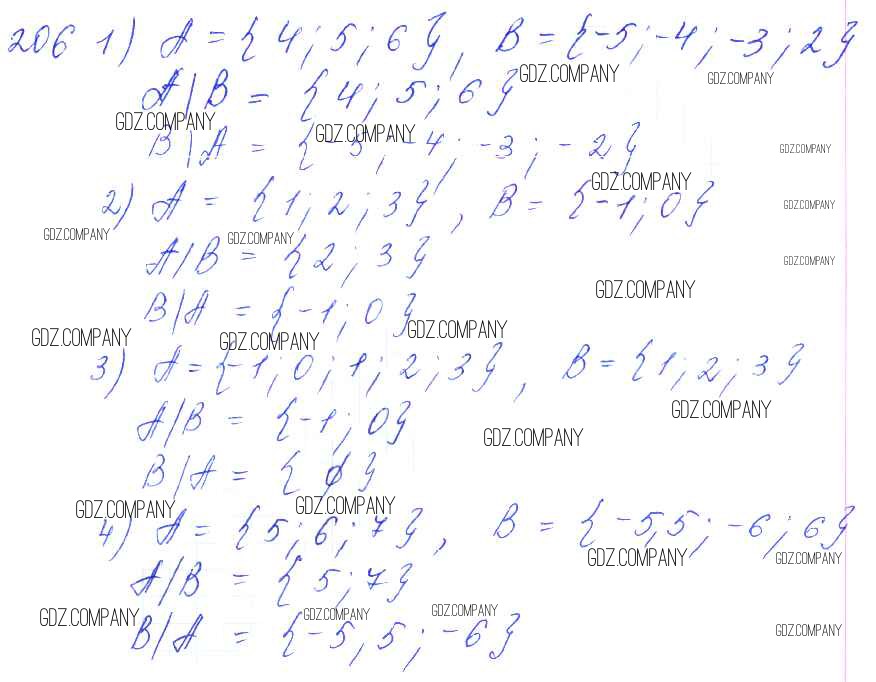 206 1) A = {4; 5; 6}, B = {-5; -4; -3; 2}
GDZ.COMPANY GDZ.COMPANY
A/B = {4; 5; 6}
GDZ.COMPANY GDZ.COMPANY
B/A = {-5; -4; -3; -2}
GDZ.COMPANY
GDZ.COMPANY
2) A = {1; 2; 3}, B = {-1; 0}
GDZ.COMPANY
GDZ.COMPANY GDZ.COMPANY
A/B = {2; 3}
GDZ.COMPANY
GDZ.COMPANY
B/A = {-1; 0}
GDZ.COMPANY GDZ.COMPANY GDZ.COMPANY
3) A = {-1; 0; 1; 2; 3}, B = {1; 2; 3}
GDZ.COMPANY
A/B = {-1; 0}
GDZ.COMPANY
B/A = {ø}
GDZ.COMPANY GDZ.COMPANY
4) A = {5; 6; 7}, B = {-5,5; -6; 6}
GDZ.COMPANY GDZ.COMPANY
A/B = {5; 7}
GDZ.COMPANY GDZ.COMPANY GDZ.COMPANY
B/A = {-5,5; -6}
GDZ.COMPANY